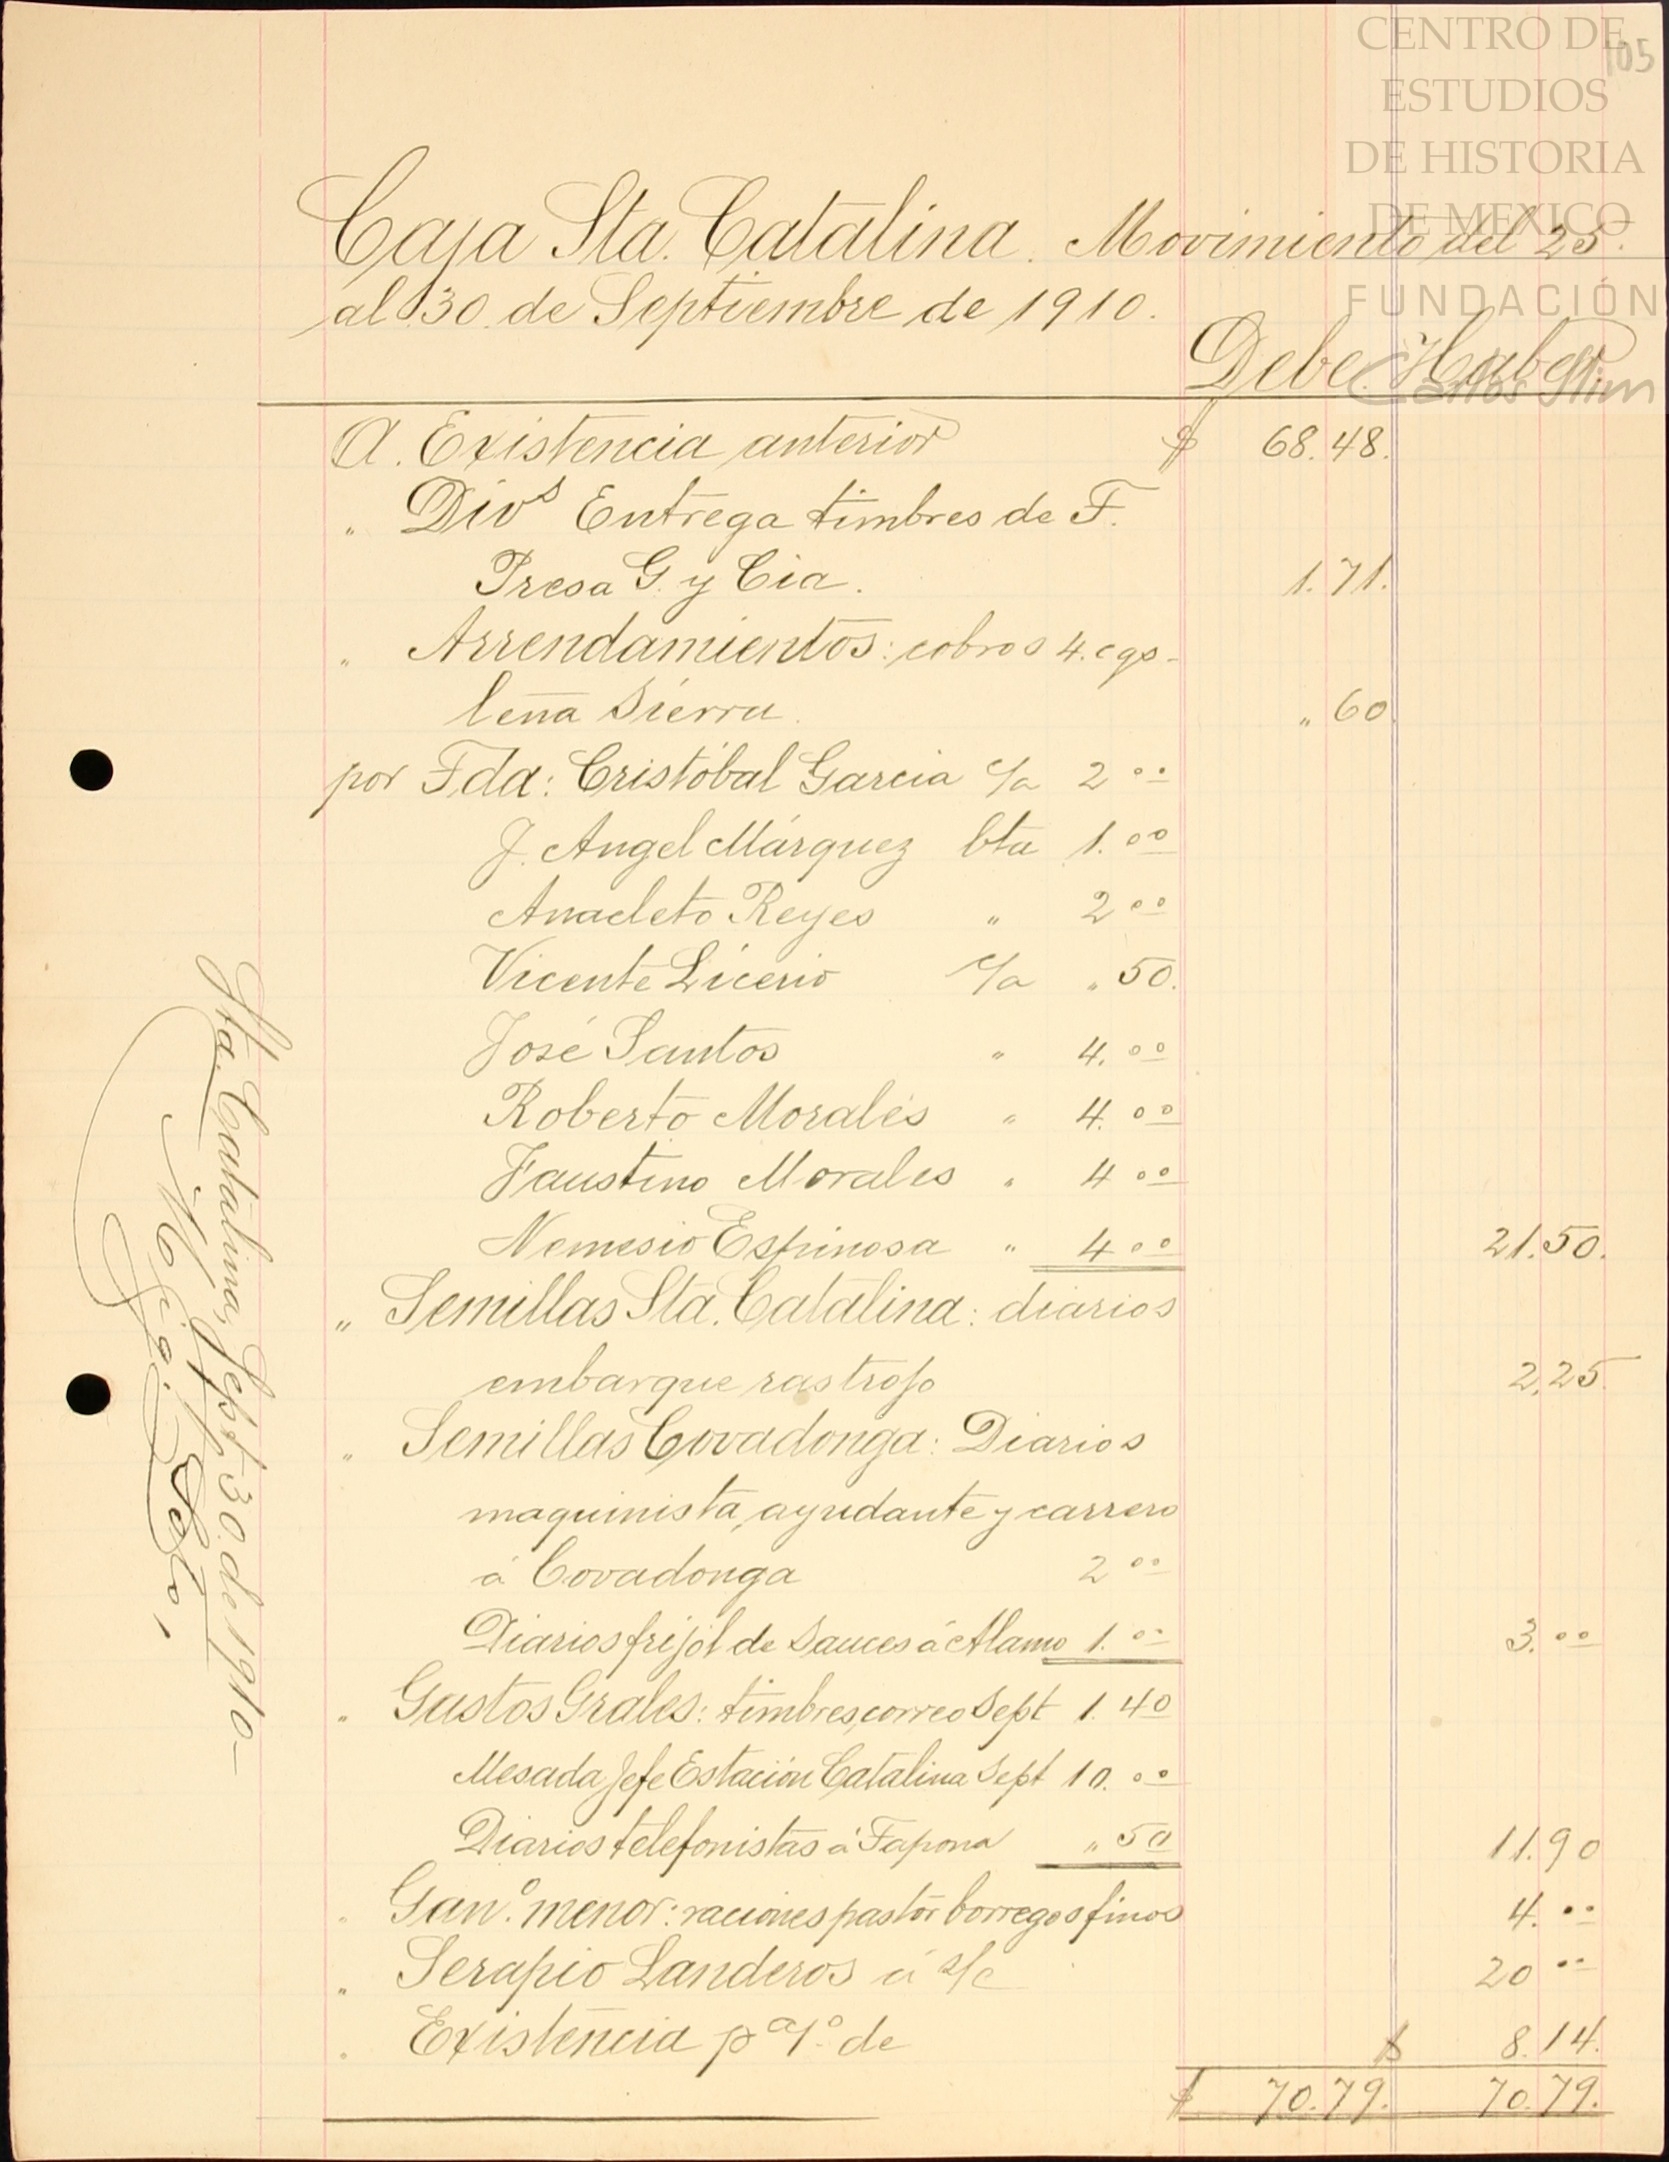 CENTRO DE
ESTUDIOS
DE HISTORIA
DE MEXICO
FUNDACIÓN
Carlos Slim
105
Caja Sta. Catalina. Movimiento del 25.
al 30 de Septiembre de 1910.
Debe. Haber.
A. Existencia anterior $ 68.48.
" Divs Entrega timbres de F.
Presa G. y Cia. 1.71.
" Arrendamientos: cobros 4. cgs-
leña Sierra. " 60
por Fda: Cristóbal Garcia c/a 2 00
J. Angel Márquez bta 1.00
Anacleto Reyes " 2 00
Vicente Licerio c/a " 50.
José Santos " 4.00
Roberto Morales " 4.00
Faustino Morales " 4 00
Nemesio Espinosa " 4 00 21.50.
" Semillas Sta. Catalina: diarios
embarque rastrojo 2,25.
" Semillas Covadonga: Diarios
maquinista, ayudante y carrero
á Covadonga 2 00
Diarios frijol de Sauces á Alamo 1.00 3.00
" Gastos Grales: timbres, correo Sept 1.40
Mesada Jefe Estación Catalina Sept 10.00
Diarios telefonistas á Tapona " 50 11.90
" Gano. menor: raciones pastor borregos finos 4.00
" Serapio Landeros á s/c 20 00
" Existencia pa 1o. de $ 8.14.
$ 70.79. 70.79.
Sta. Catalina, Sept. 30. de 1910-